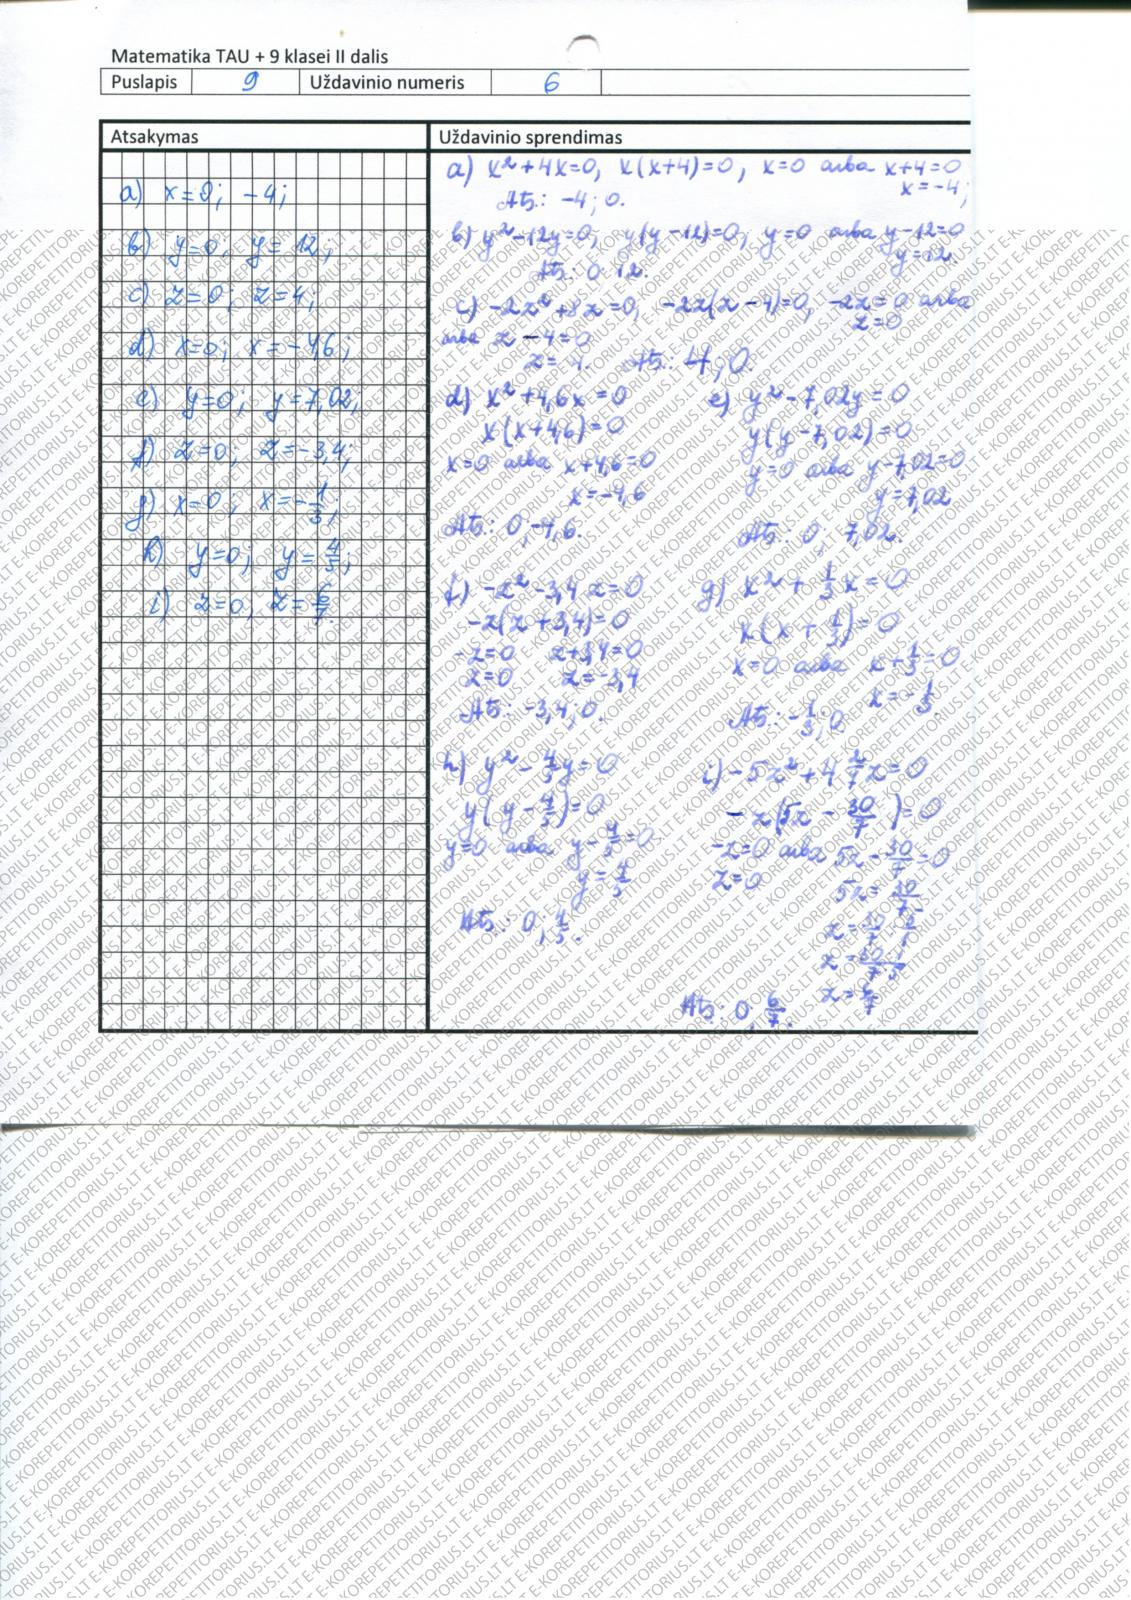 Matematika TAU + 9 klasei II dalis
Puslapis 9 Uždavinio numeris 6
Atsakymas
a) x=0; -4;
b) y=0; y=12;
c) z=0; z=4;
d) x=0; x=-4,6;
e) y=0; y=7,02;
f) z=0; z=-3,4;
g) x=0; x=-1/3;
h) y=0; y=4/5;
i) z=0; z=6/7.
Uždavinio sprendimas
a) x²+4x=0, x(x+4)=0, x=0 arba x+4=0
x=-4;
Ats.: -4; 0.
b) y²-12y=0, y(y-12)=0, y=0 arba y-12=0
y=12.
Ats.: 0; 12.
c) -2z²+8z=0, -2z(z-4)=0, -2z=0 arba
z=0
arba z-4=0
z=4. Ats.: 4; 0.
d) x²+4,6x=0
x(x+4,6)=0
x=0 arba x+4,6=0
x=-4,6
Ats.: 0; -4,6.
e) y²-7,02y=0
y(y-7,02)=0
y=0 arba y-7,02=0
y=7,02
Ats.: 0; 7,02.
f) -z²-3,4z=0
-z(z+3,4)=0
-z=0 z+3,4=0
z=0 z=-3,4
Ats.: -3,4; 0.
g) x²+1/3x=0
x(x+1/3)=0
x=0 arba x+1/3=0
x=-1/3
Ats.: -1/3; 0.
h) y²-4/5y=0
y(y-4/5)=0
y=0 arba y-4/5=0
y=4/5
Ats.: 0; 4/5.
i) -5z²+4 2/7z=0
-z(5z-30/7)=0
-z=0 arba 5z-30/7=0
z=0
5z=30/7
z=30·1/7·5
z=6/7
Ats.: 0; 6/7.
E-KOREPETITORIUS.LT